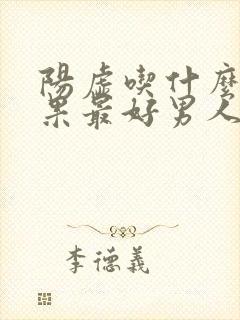 陽虛喫什麼
果最好男人
李德義